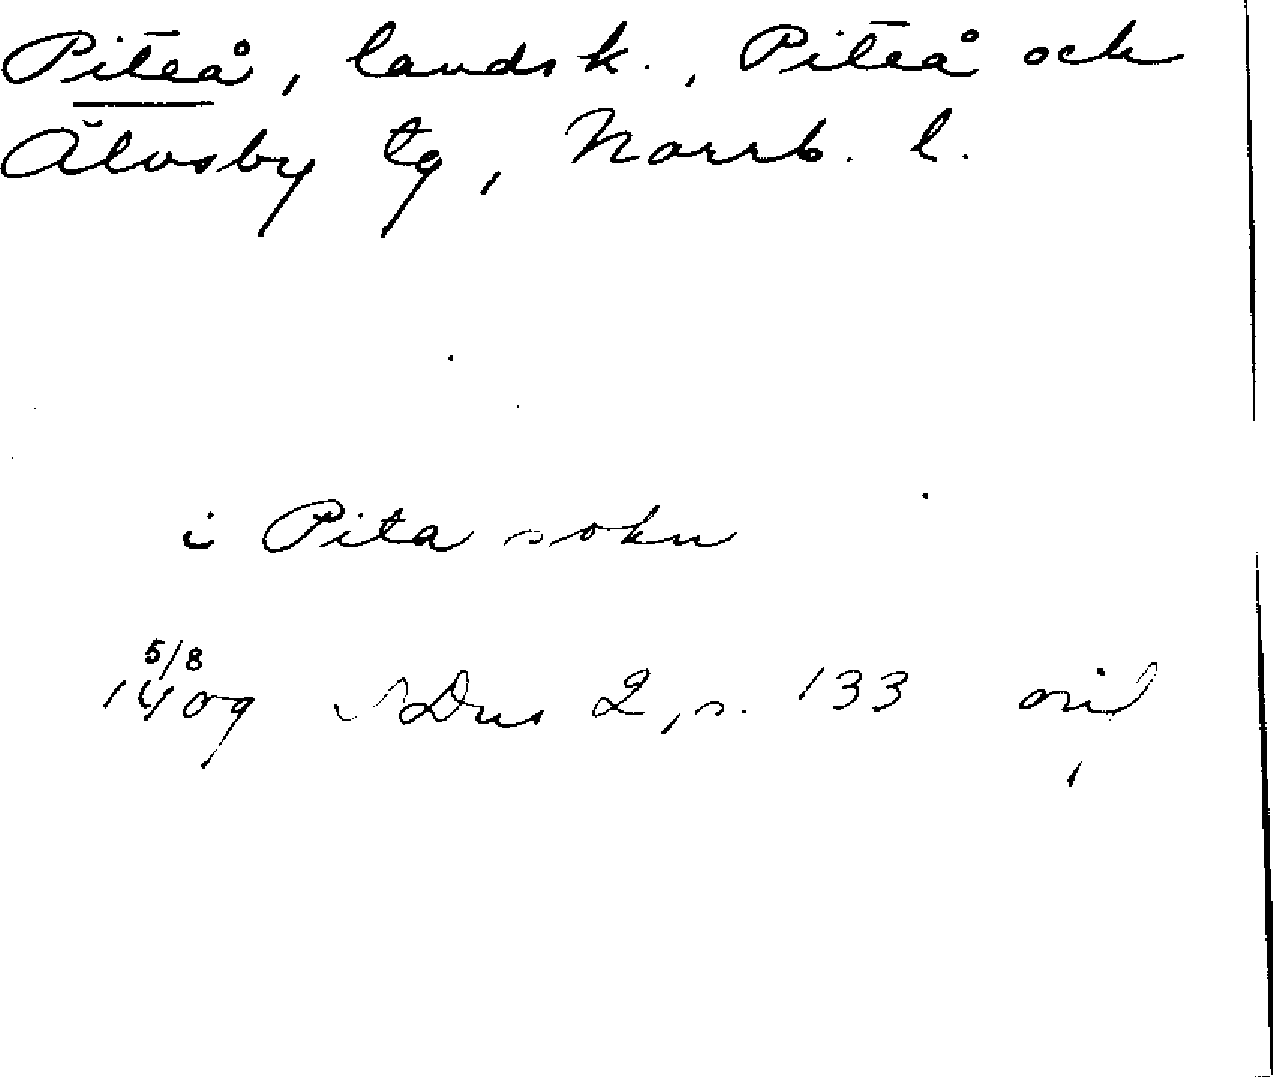 Piteå, landsk., Piteå och
Älvsby tg, Norrb. l.
i Pita sokn
5/8
1409 SDns 2, s. 133 or